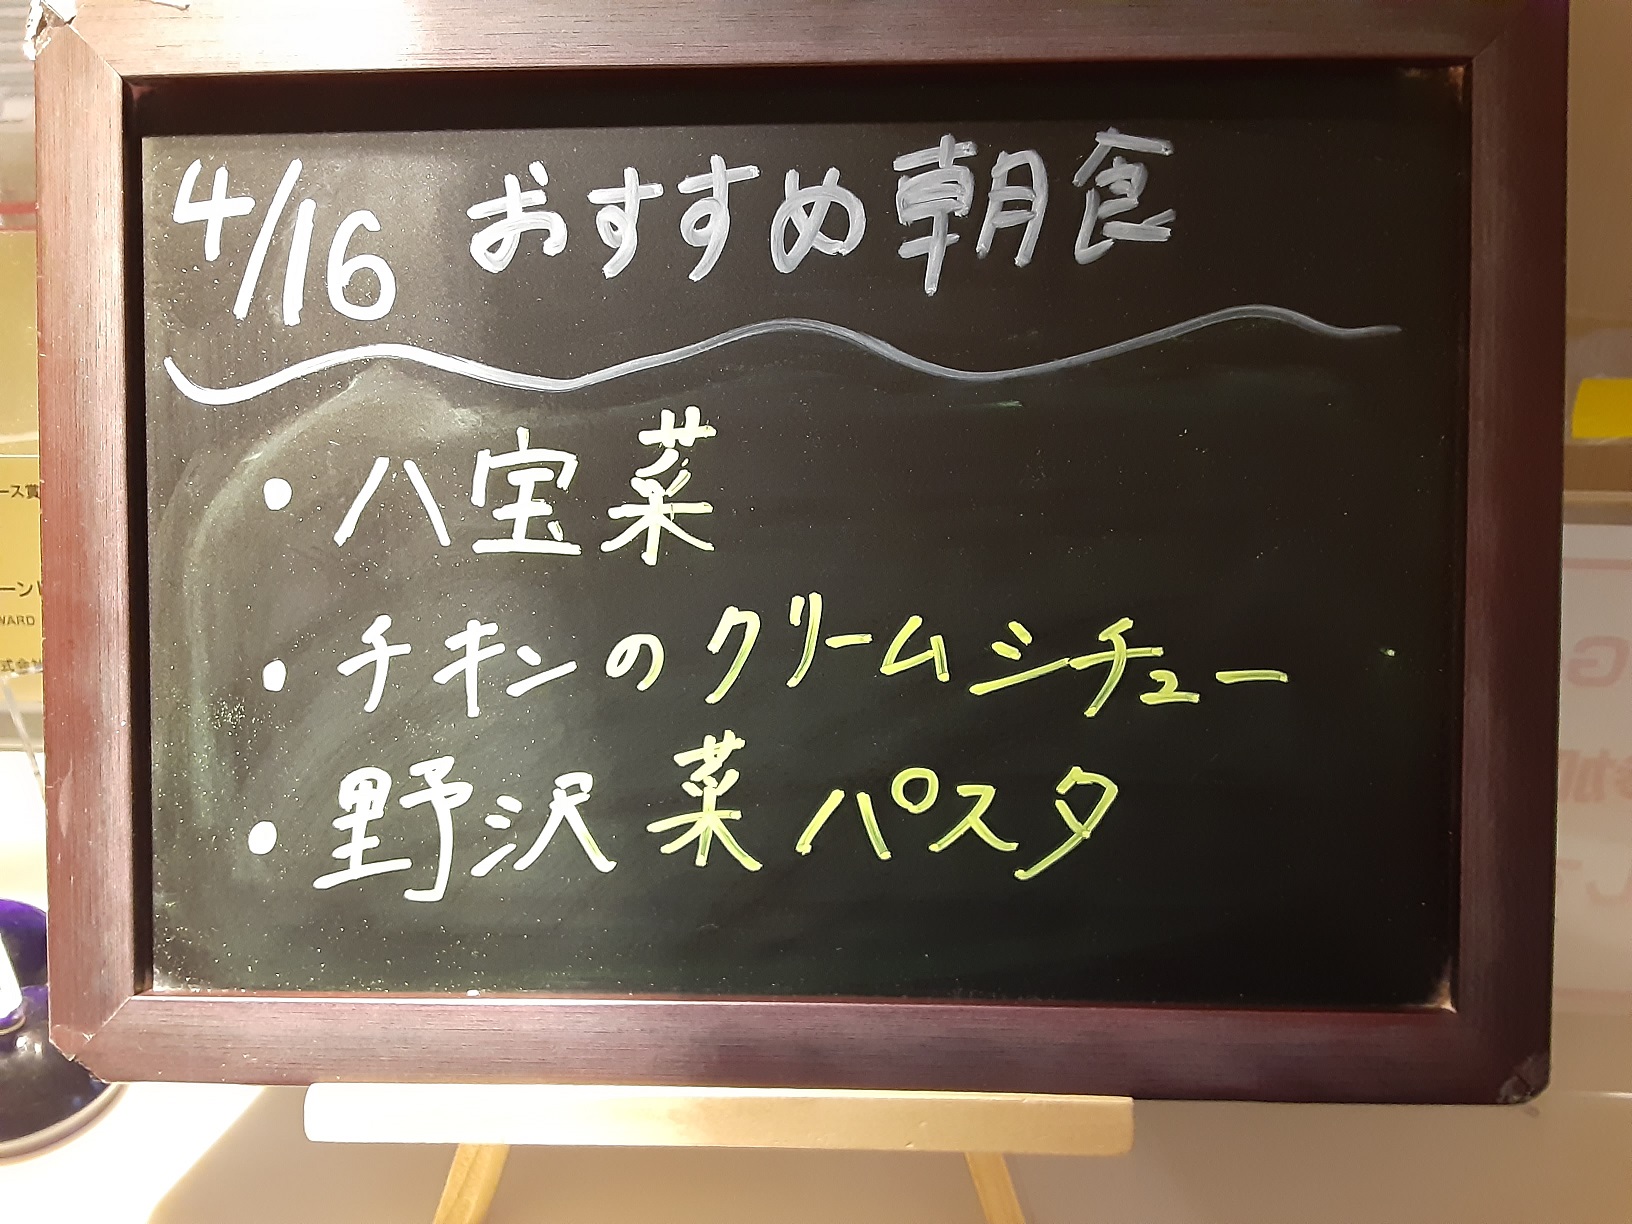 4/16 おすすめ朝食
・八宝菜
・チキンのクリームシチュー
・野沢菜パスタ
ース賞
WARD
G